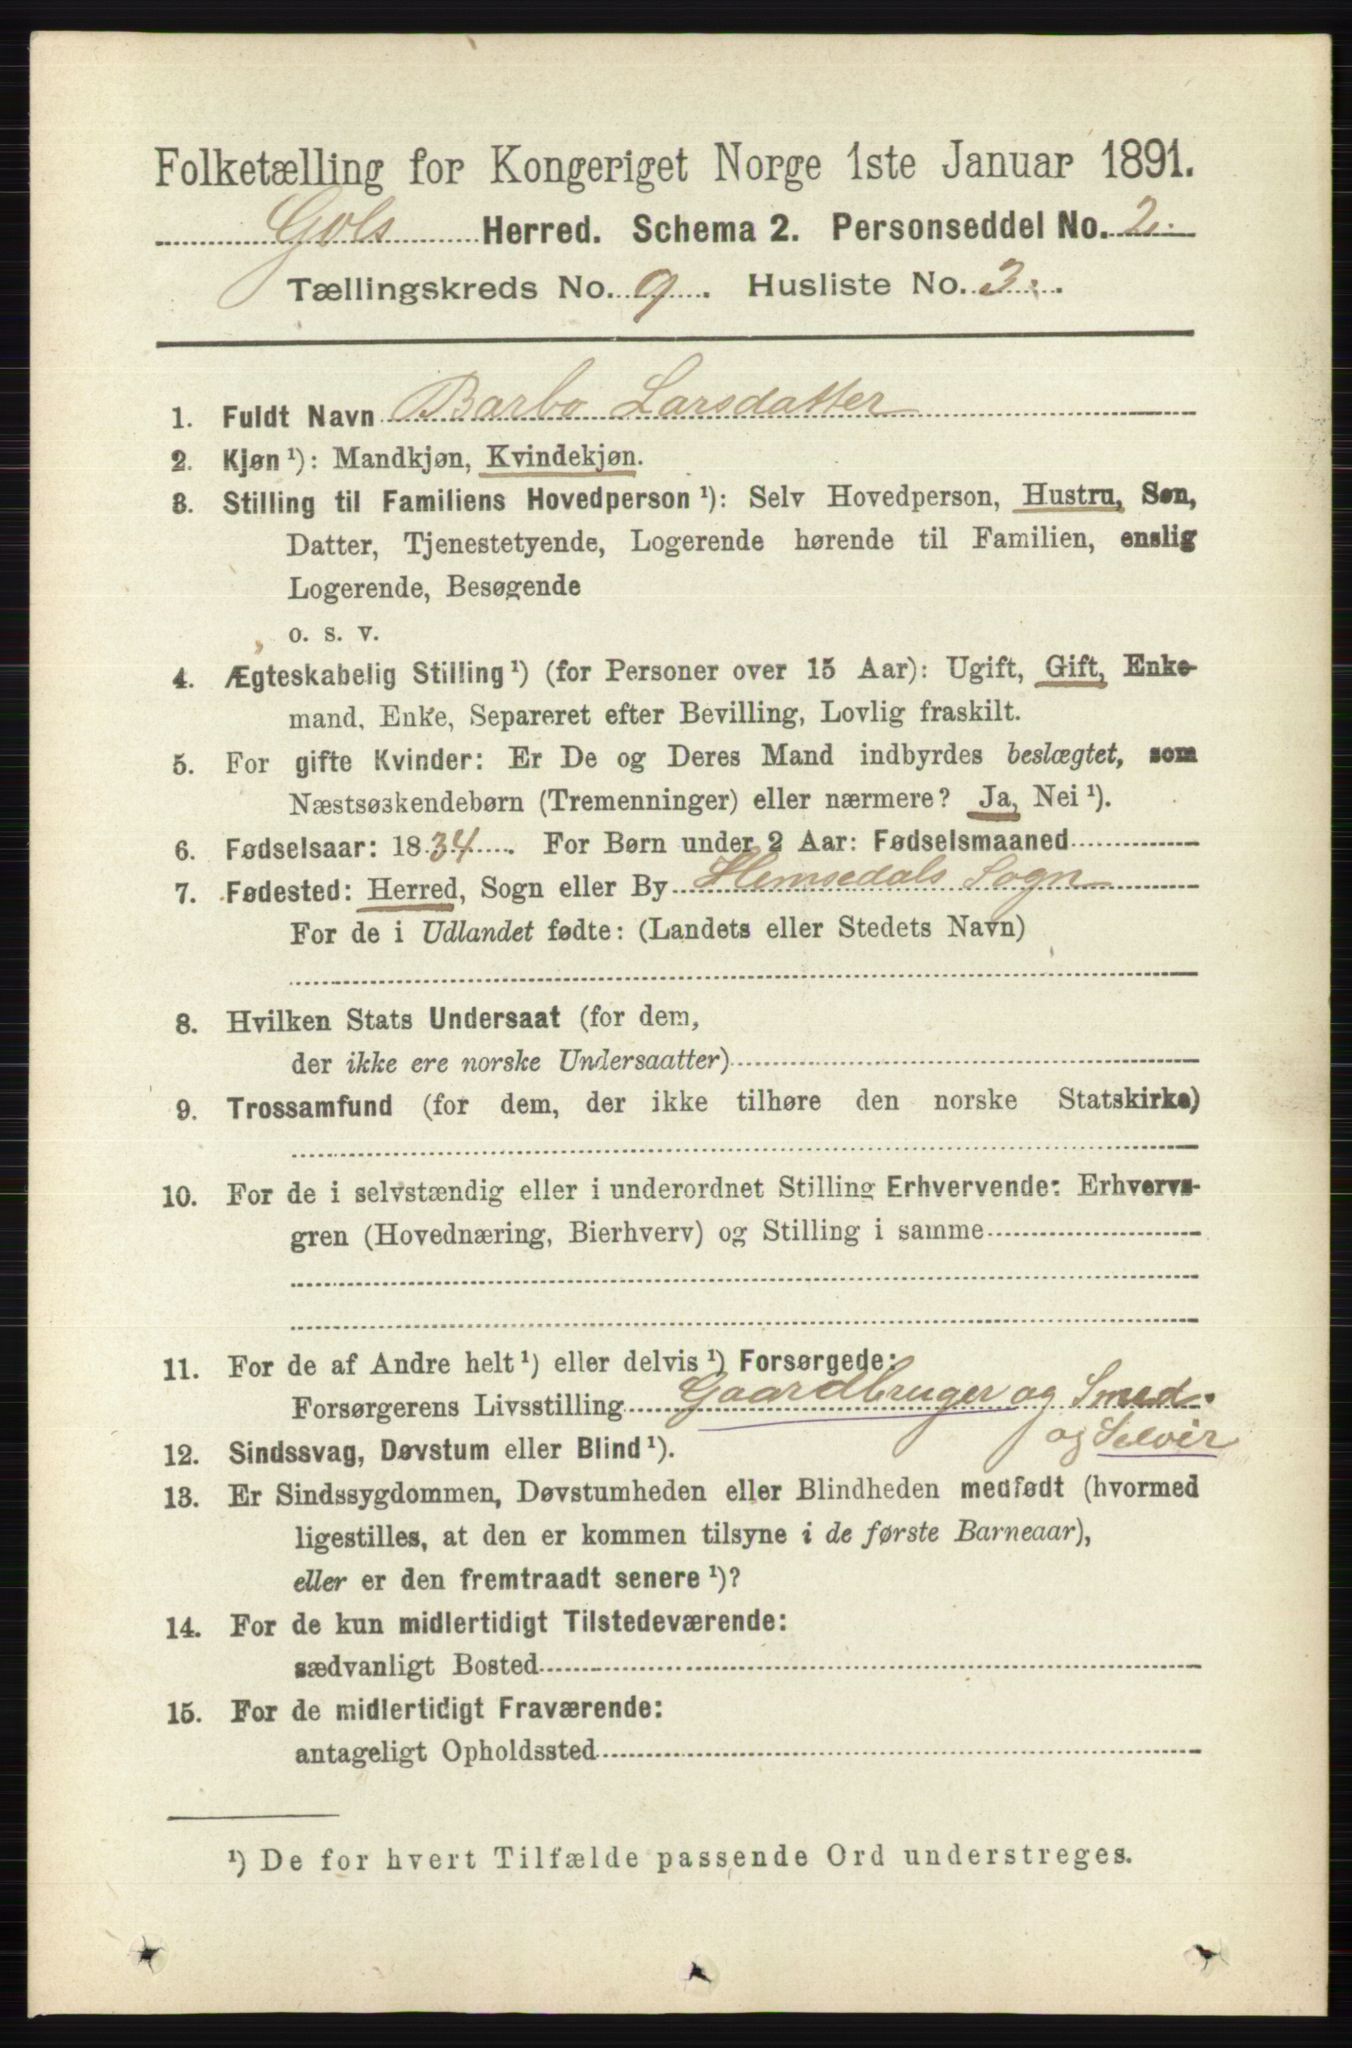 Folketælling for Kongeriget Norge 1ste Januar 1891.
Gols Herred. Schema 2. Personseddel No. 2.
Tællingskreds No. 9. Husliste No. 3.
1. Fuldt Navn Barbo Larsdatter
2. Kjøn ¹): Mandkjøn, Kvindekjøn.
3. Stilling til Familiens Hovedperson ¹): Selv Hovedperson, Hustru, Søn,
Datter, Tjenestetyende, Logerende hørende til Familien, enslig
Logerende, Besøgende
o. s. v.
4. Ægteskabelig Stilling ¹) (for Personer over 15 Aar): Ugift, Gift, Enke-
mand, Enke, Separeret efter Bevilling, Lovlig fraskilt.
5. For gifte Kvinder: Er De og Deres Mand indbyrdes beslægtet, som
Næstsøskendebørn (Tremenninger) eller nærmere? Ja, Nei ¹).
6. Fødselsaar: 1834. For Børn under 2 Aar: Fødselsmaaned
7. Fødested: Herred, Sogn eller By Hemsedals Sogn
For de i Udlandet fødte: (Landets eller Stedets Navn)
8. Hvilken Stats Undersaat (for dem,
der ikke ere norske Undersaatter)
9. Trossamfund (for dem, der ikke tilhøre den norske Statskirke)
10. For de i selvstændig eller i underordnet Stilling Erhvervende: Erhvervs-
gren (Hovednæring, Bierhverv) og Stilling i samme
11. For de af Andre helt ¹) eller delvis ¹) Forsørgede:
Forsørgerens Livsstilling Gaardbruger og Smed.
og Selveir
12. Sindssvag, Døvstum eller Blind ¹).
13. Er Sindssygdommen, Døvstumheden eller Blindheden medfødt (hvormed
ligestilles, at den er kommen tilsyne i de første Barneaar),
eller er den fremtraadt senere ¹)?
14. For de kun midlertidigt Tilstedeværende:
sædvanligt Bosted
15. For de midlertidigt Fraværende:
antageligt Opholdssted
¹) De for hvert Tilfælde passende Ord understreges.